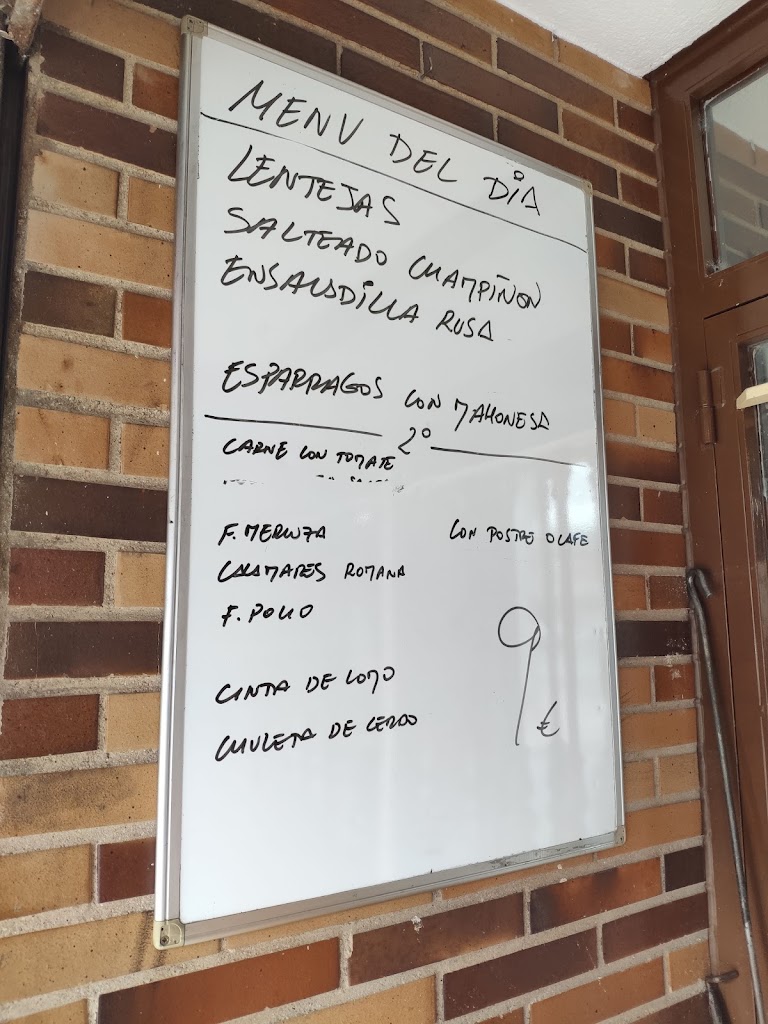 MENU DEL DiA
LENTEJAS
SALTEADO CHAMPIÑON
ENSALADILLA RUSA
ESPARRAGOS CON MAHONESA
2º
CARNE CON TOMATE
F. MERLUZA
CON POSTRE O CAFE
CALAMARES ROMANA
F. POLLO
9 €
CINTA DE LOMO
CHULETA DE CERDO